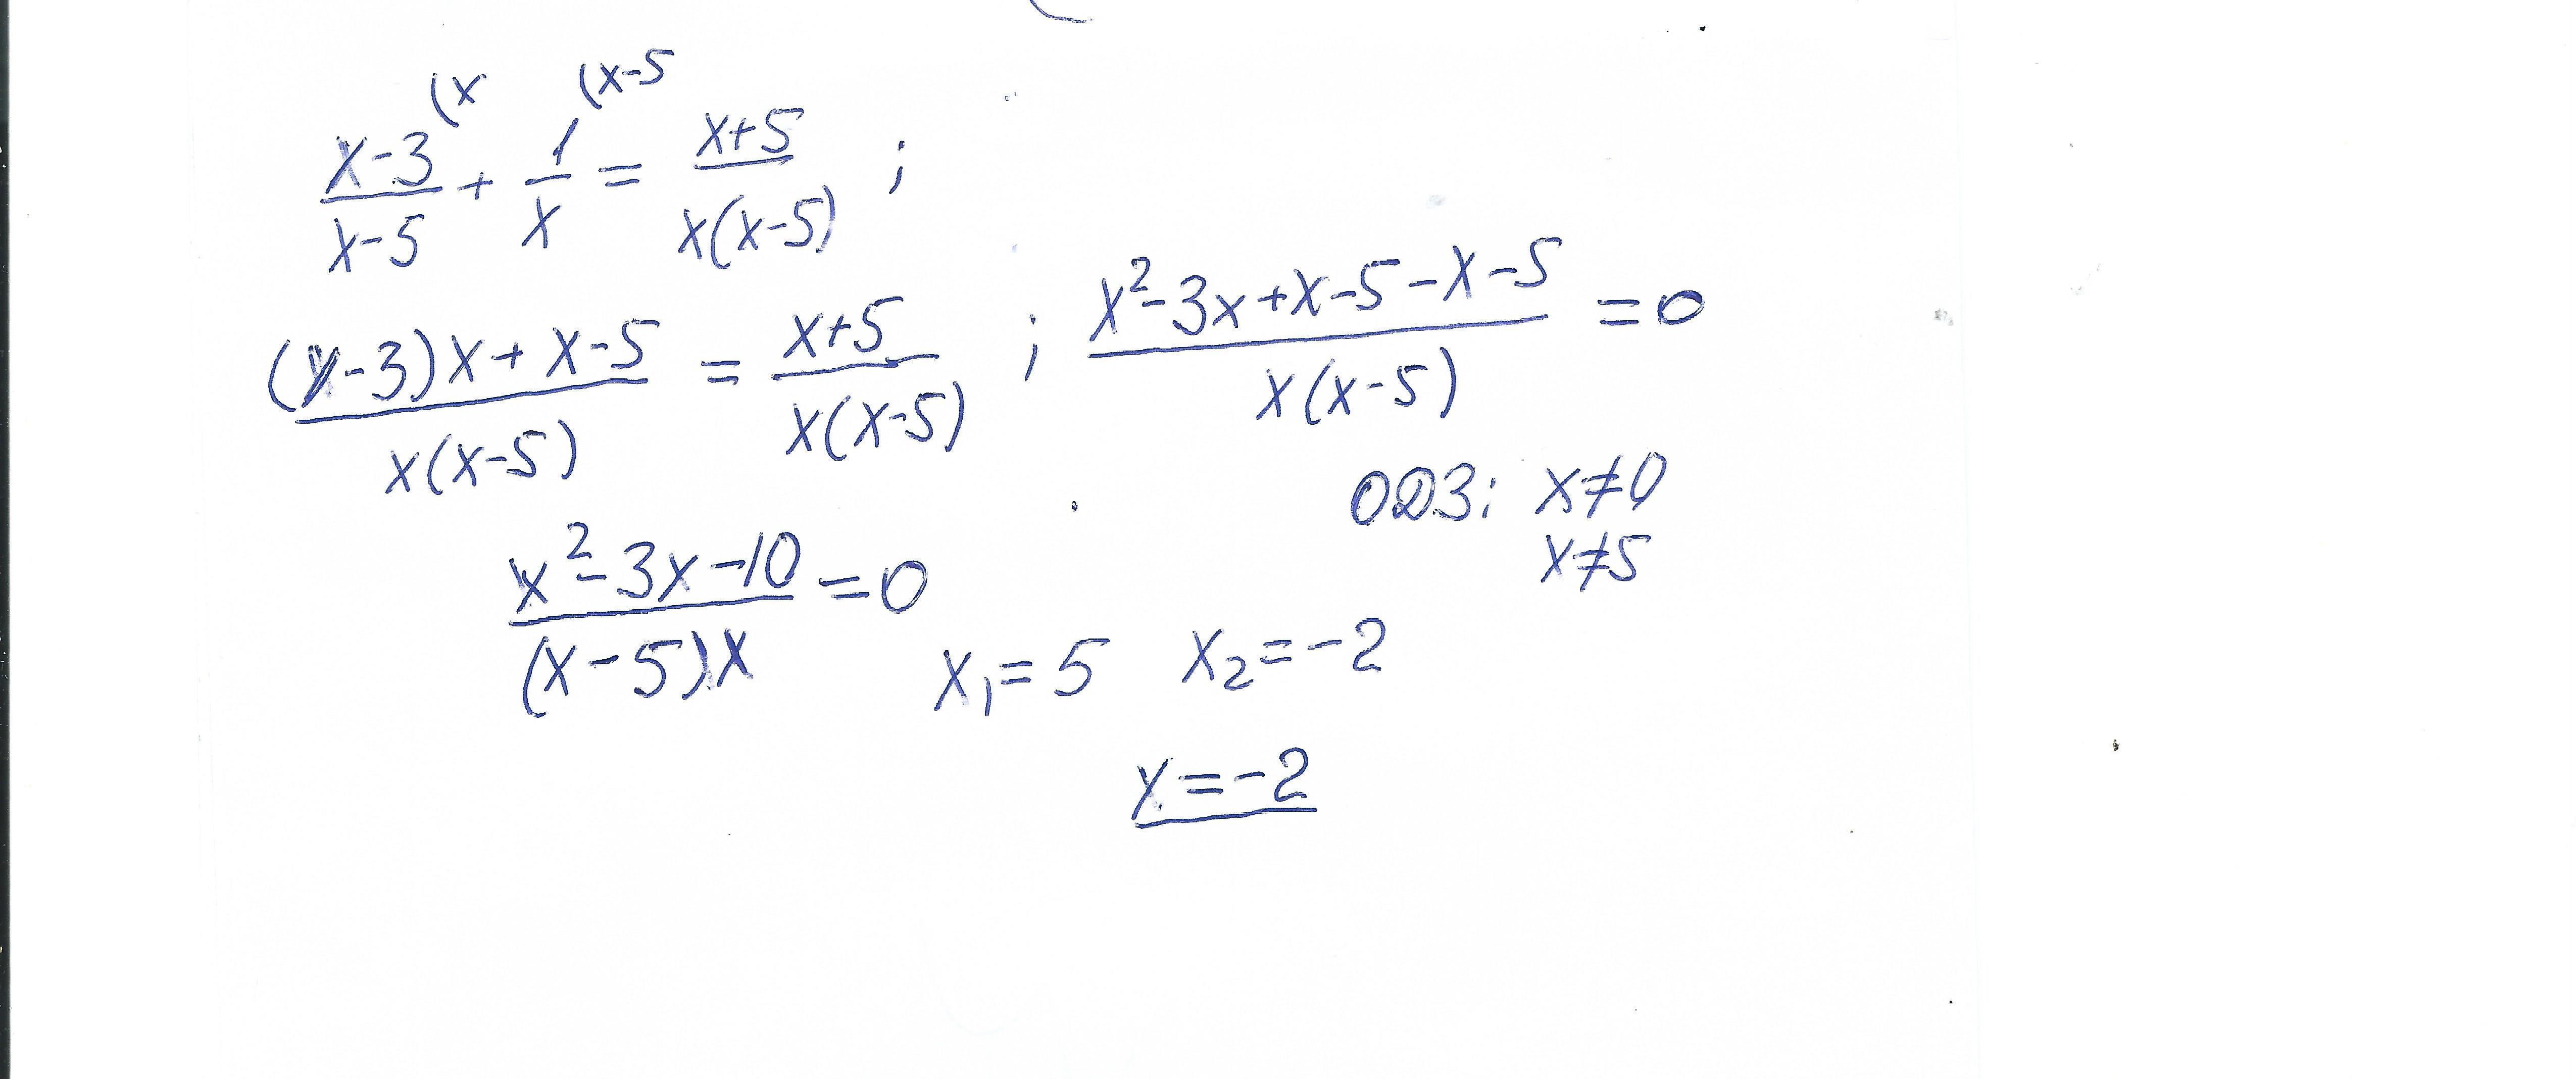 (x (x-5
(x-3)/(x-5) + 1/x = (x+5)/(x(x-5)) ;
((x-3)x + x-5)/(x(x-5)) = (x+5)/(x(x-5)) ; (x²-3x+x-5-x-5)/(x(x-5)) = 0
ОДЗ: x≠0
x≠5
(x²-3x-10)/((x-5)x) = 0
x₁=5 x₂=-2
x=-2